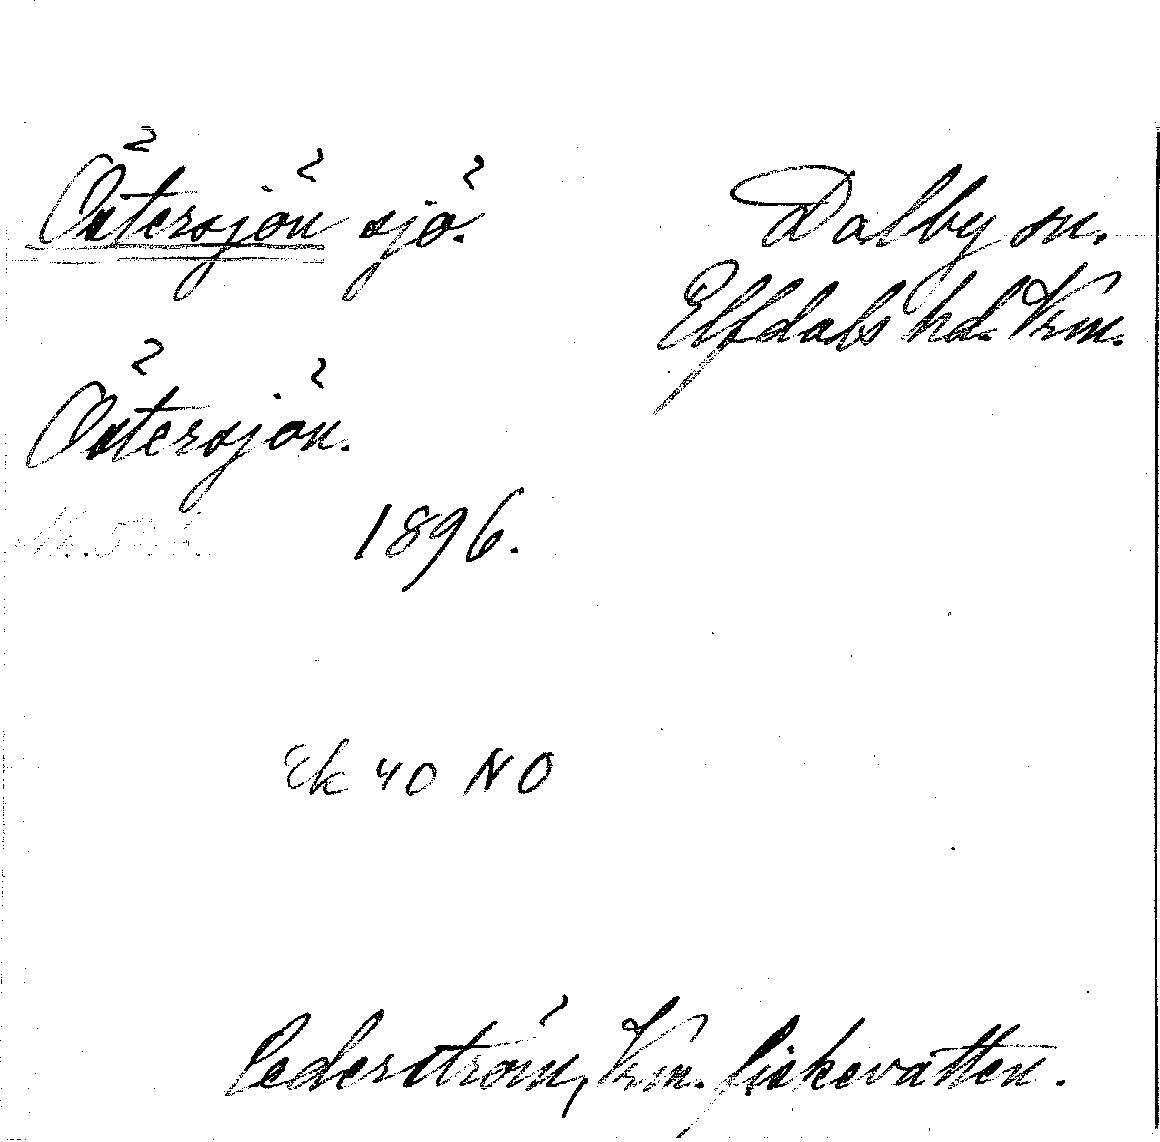 Östersjön sjö.
Dalby sn.
Elfdals hd. Vrm.
Östersjön.
1896.
Ek 40 NO
Cederström, Vrm. fiskevatten.